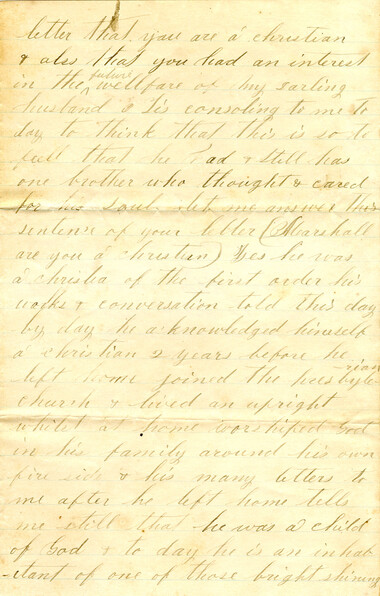 letter that you are a christian
& also that you had an interest
in the future wellfare of my sarling
husband s Tis consoling to me to
day to think that this is so to
feel that he had & still has
one brother who thought & cared
for his soul let me answer this
sentence of your letter (Marshall
are you a christian) Yes he was
a christia of the first order his
works & conversation told this day
by day he acknowledged himself
a christian 2 years before he
left home joined the presbyterian
church & lived an upright
whilst at home worshiped God
in his family around his own
fire side & his many letters to
me after he left home tells
me still that he was a child
of God & to day he is an inhab
-itant of one of those bright shining